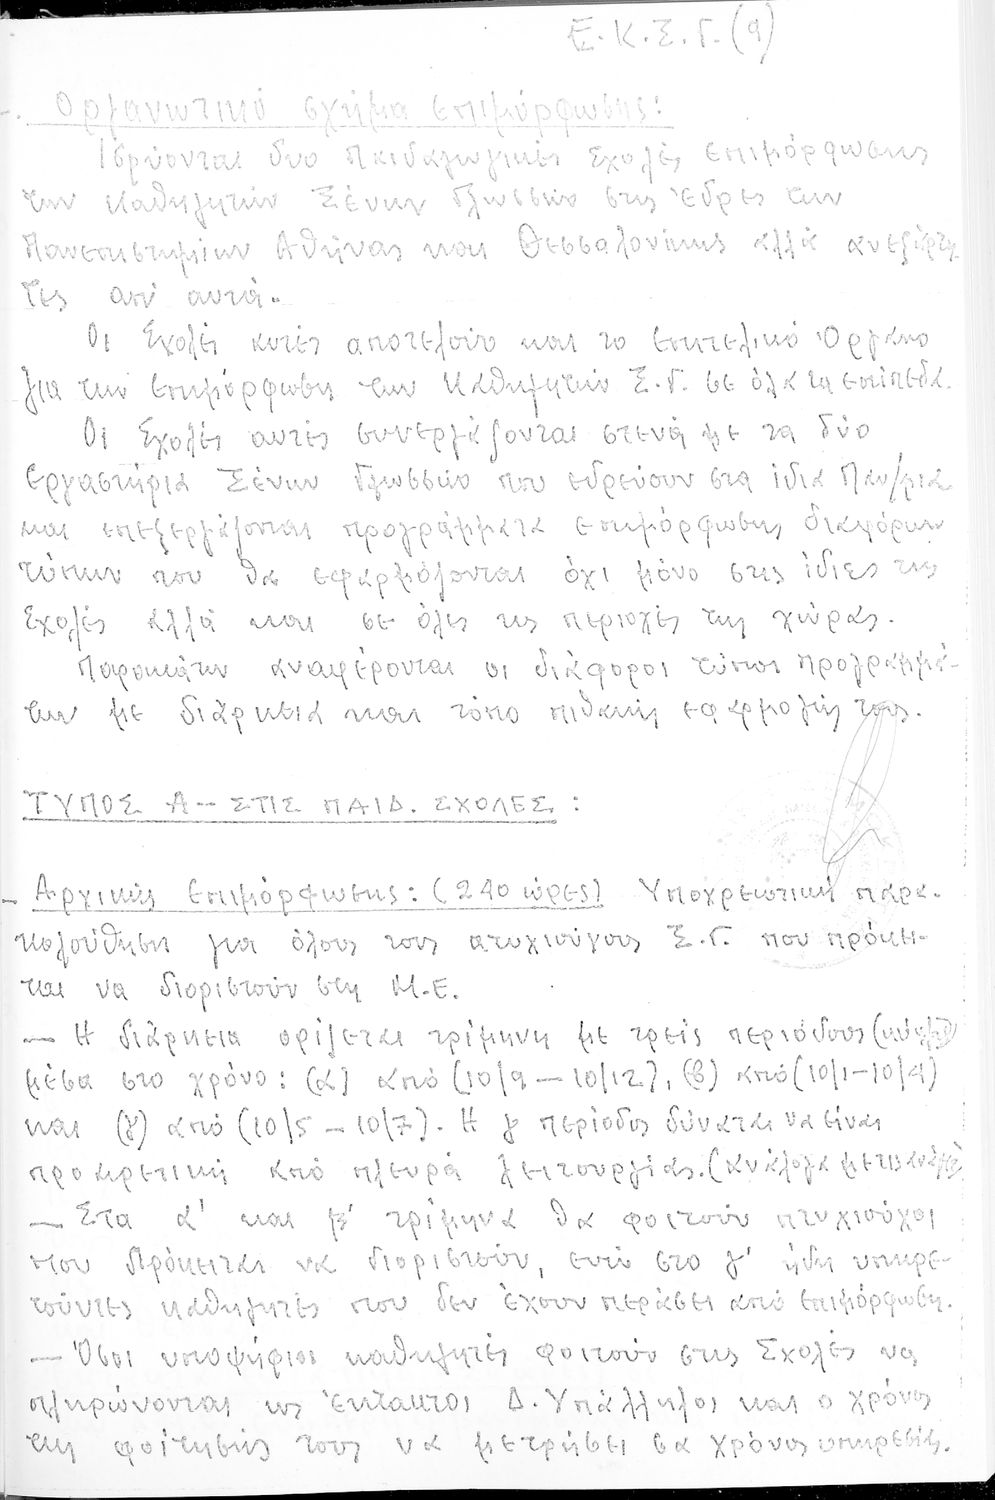 Ε.Κ.Σ.Γ.(9)
-. Οργανωτικό σχήμα επιμόρφωσης:
Ιδρύονται δυο Παιδαγωγικές Σχολές επιμόρφωσης
των Καθηγητών Ξένων Γλωσσών στις Έδρες των
Πανεπιστημίων Αθήνας και Θεσσαλονίκης αλλά ανεξάρτη-
τες απ' αυτά.
Οι Σχολές αυτές αποτελούν και το επιτελικό Όργανο
για την επιμόρφωση των Καθηγητών Ξ.Γ. σε όλα τα επίπεδα.
Οι Σχολές αυτές συνεργάζονται στενά με τα δύο
εργαστήρια Ξένων Γλωσσών που εδρεύουν στα ίδια Παν/μια
και επεξεργάζονται προγράμματα επιμόρφωσης διαφόρων
τύπων που θα εφαρμόζονται όχι μόνο στις ίδιες τις
Σχολές αλλά και σε όλες τις περιοχές της χώρας.
Παρακάτω αναφέρονται οι διάφοροι τύποι προγραμμά-
των με διάρκεια και τόπο πιθανής εφαρμογής τους.
ΤΥΠΟΣ Α- ΣΤΙΣ ΠΑΙΔ. ΣΧΟΛΕΣ :
- Αρχικής Επιμόρφωσης: (240 ώρες) Υποχρεωτική παρα-
κολούθηση για όλους τους πτυχιούχους Ξ.Γ. που πρόκει-
ται να διοριστούν στη Μ.Ε.
- Η διάρκεια ορίζεται τρίμηνη με τρεις περιόδους
μέσα στο χρόνο: (α) από (10/9-10/12), (β) από (10/1-10/4)
και (γ) από (10/5-10/7). Η γ περίοδος δύναται να είναι
προαιρετική από πλευρά λειτουργίας. (ανάλογα με τις
- Στα α' και β' τρίμηνα θα φοιτούν πτυχιούχοι
που πρόκειται να διοριστούν, ενώ στο γ' ήδη υπηρε-
τούντες καθηγητές που δεν έχουν περάσει από επιμόρφωση.
- Όσοι υποψήφιοι καθηγητές φοιτούν στις Σχολές να
πληρώνονται ως Έκτακτοι Δ. Υπάλληλοι και ο χρόνος
της φοίτησής τους να μετρήσει σα χρόνος υπηρεσίας.